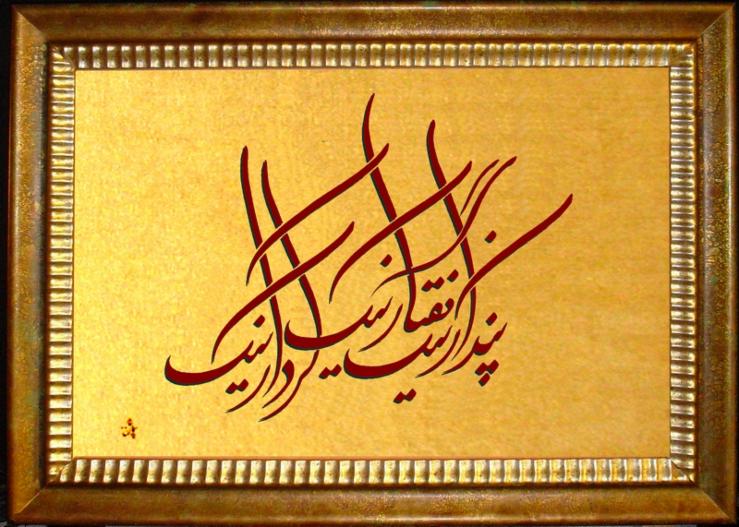 پندار نیک گفتار نیک کردار نیک